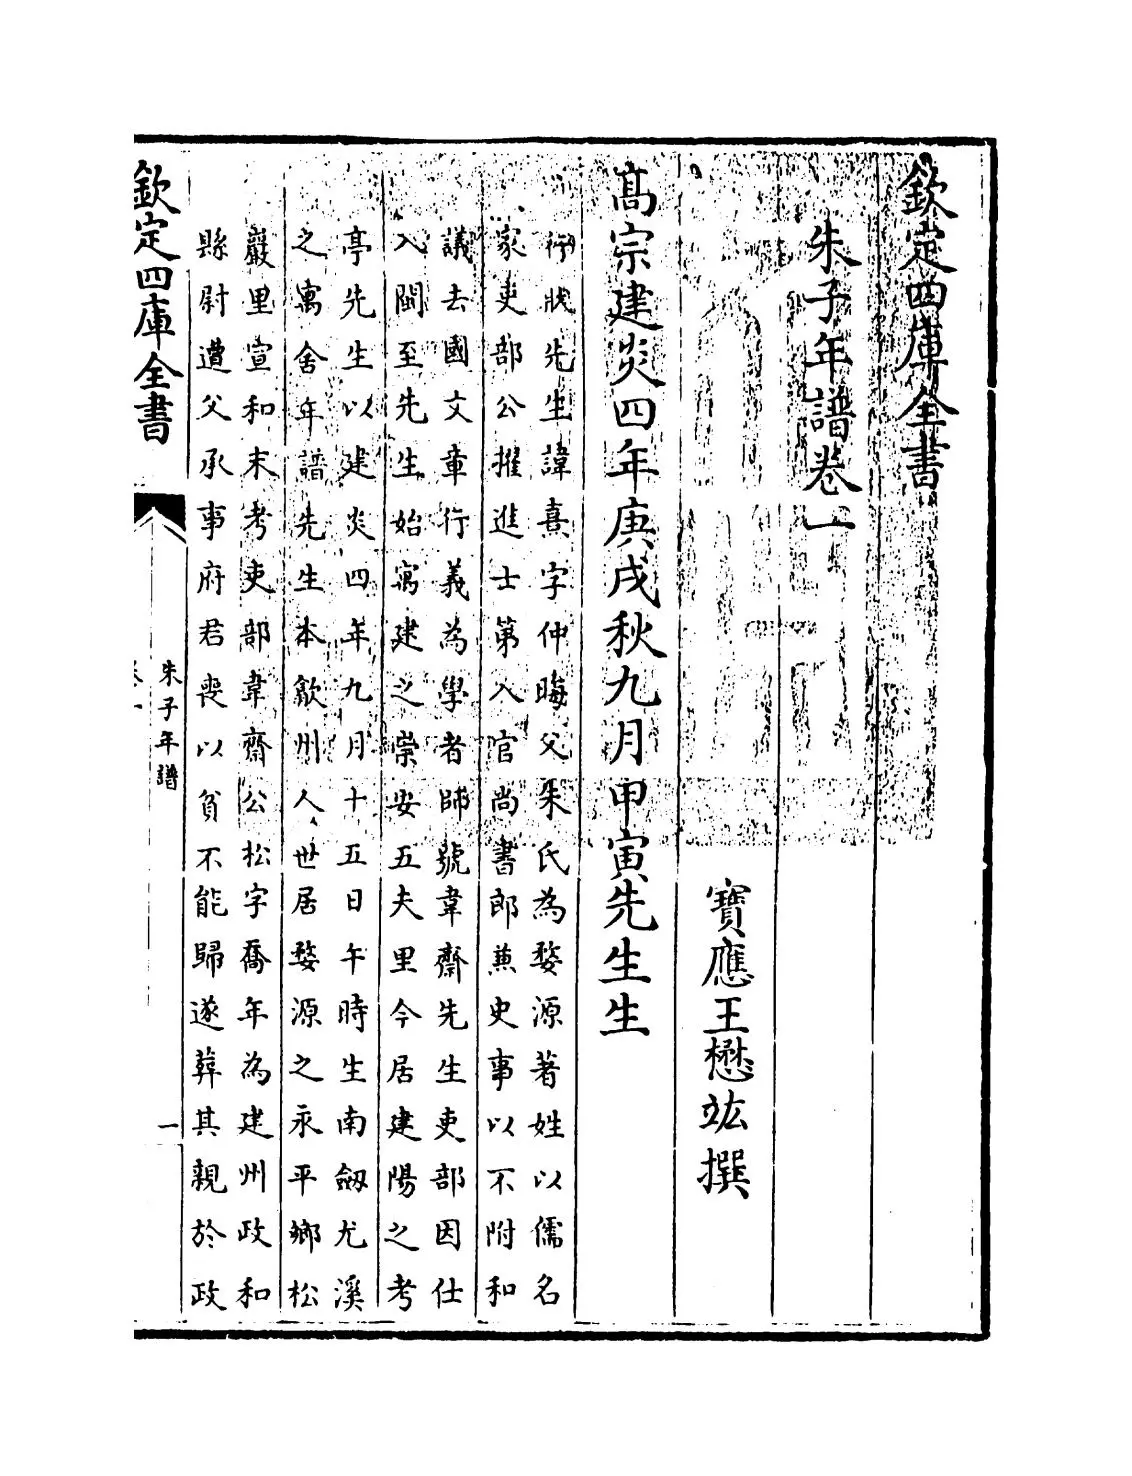 欽定四庫全書
朱子年譜卷一
寶應王懋竑撰
高宗建炎四年庚戌秋九月甲寅先生生
行狀先生諱熹字仲晦父朱氏為婺源著姓以儒名
家吏部公擢進士第入官尚書郎兼史事以不附和
議去國文章行義為學者師號韋齋先生吏部因仕
入閩至先生始寓建之崇安五夫里今居建陽之考
亭先生以建炎四年九月十五日午時生南劔尤溪
之寓舍年譜先生本歙州人世居婺源之永平鄉松
巖里宣和末考吏部韋齋公松字喬年為建州政和
縣尉遭父承事府君喪以貧不能歸遂葬其親於政
欽定四庫全書
朱子年譜
卷一
一